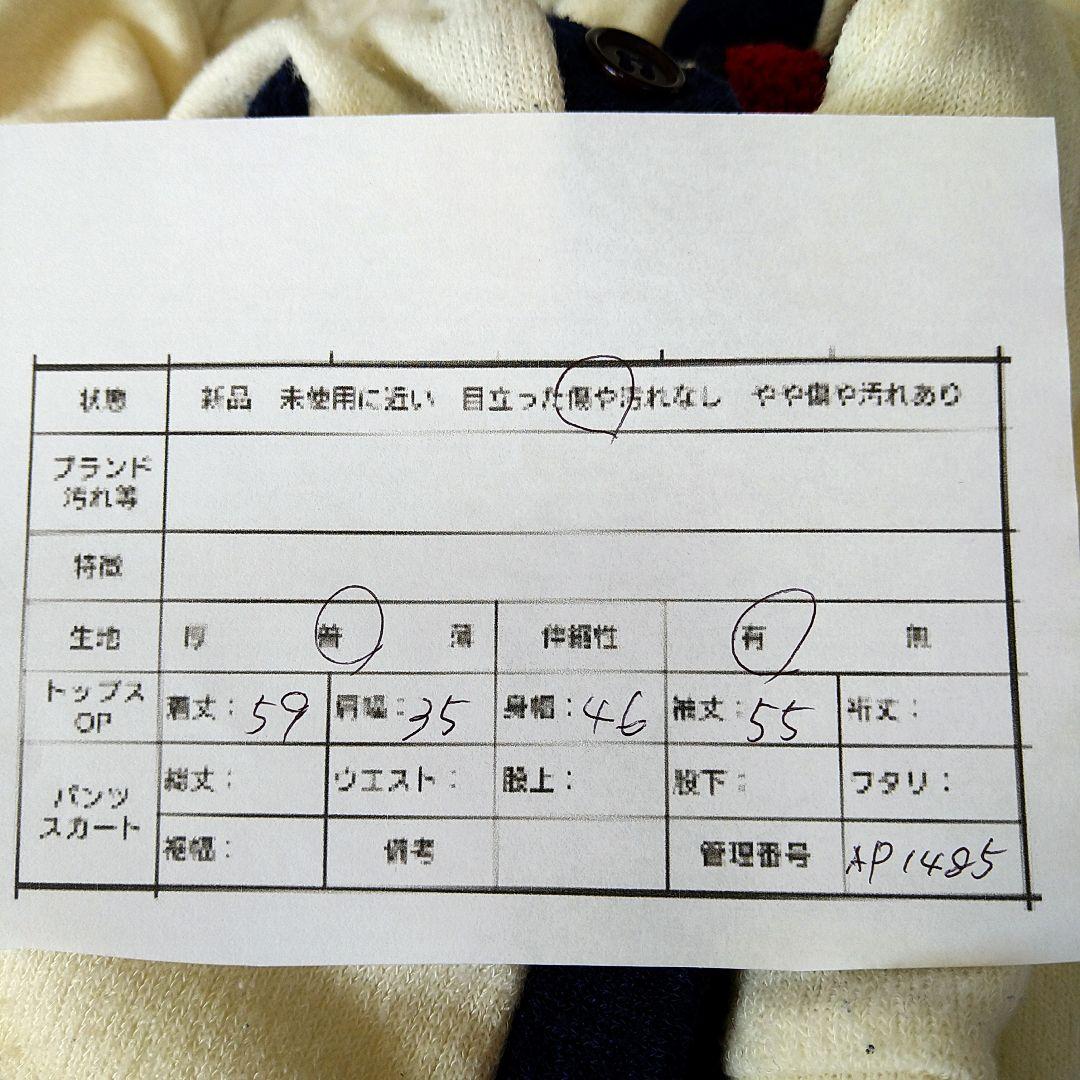 状態 新品 未使用に近い 目立った傷や汚れなし やや傷や汚れあり
ブランド
汚れ等
特徴
生地 厚 普 薄 伸縮性 有 無
トップス
OP
着丈：59 肩幅：35 身幅：46 袖丈：55 裄丈：
パンツ
スカート
総丈： ウエスト： 股上： 股下： ワタリ：
裾幅： 備考 管理番号 AP1485